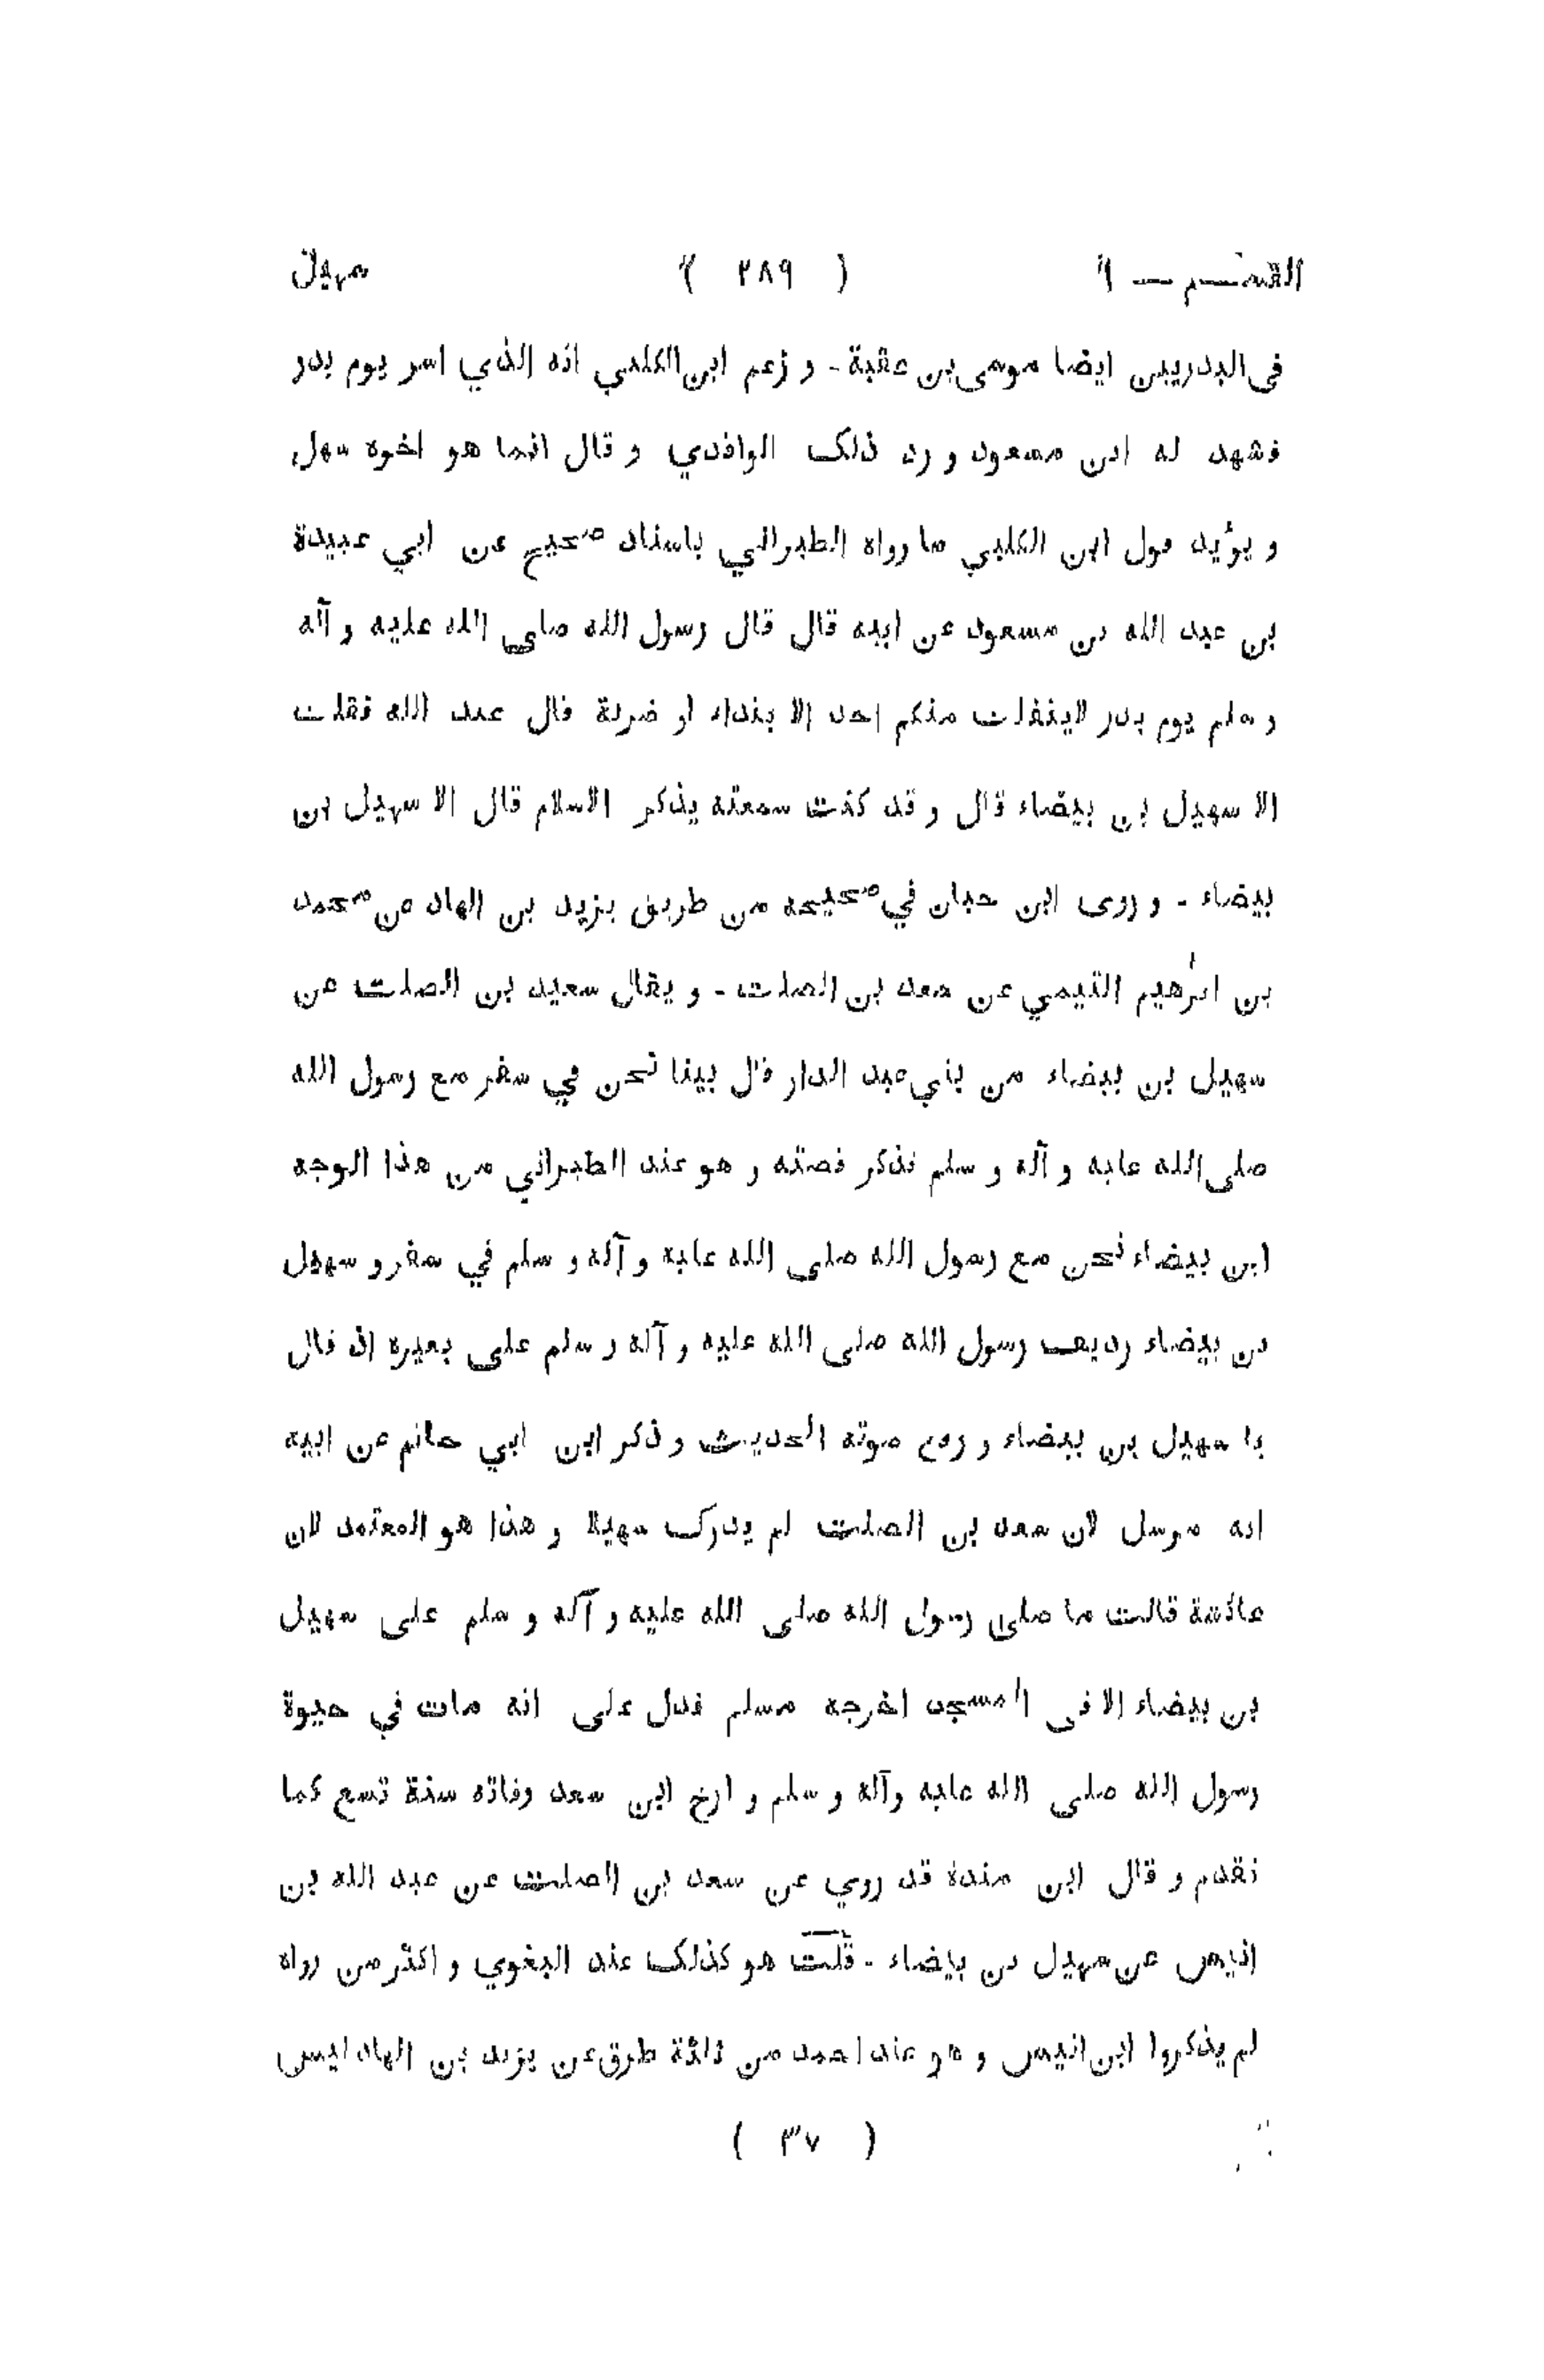 القسم — ١ ( ٢٨٩ ) سهيل
فى البدريين ايضا موسى بن عقبة - و زعم ابن الكلبي انه الذي اسر يوم بدر
فشهد له ابن مسعود و رد ذلك الواقدي و قال انما هو اخوه سهل
و يؤيد قول ابن الكلبي ما رواه الطبراني باسناد صحيح عن ابي عبيدة
بن عبد الله بن مسعود عن ابيه قال قال رسول الله صلى الله عليه و آله
و سلم يوم بدر لاينفلت منكم احد الا بفداء او ضربة قال عبد الله فقلت
الا سهيل بن بيضاء قال و قد كنت سمعته يذكر الاسلام قال الا سهيل بن
بيضاء - و روى ابن حبان في صحيحه من طريق يزيد بن الهاد عن محمد
بن ابرٰهيم التيمي عن سعد بن الصلت - و يقال سعيد بن الصلت عن
سهيل بن بيضاء من بني عبد الدار قال بينا نحن في سفر مع رسول الله
صلى الله عليه و آله و سلم فذكر قصته و هو عند الطبراني من هذا الوجه
ابن بيضاء نحن مع رسول الله صلى الله عليه و آله و سلم في سفر و سهيل
بن بيضاء رديف رسول الله صلى الله عليه و آله و سلم على بعيره اذ قال
يا سهيل بن بيضاء و رفع صوته الحديث و ذكر ابن ابي حاتم عن ابيه
انه مرسل لان سعد بن الصلت لم يدرك سهيلا و هذا هو المعتمد لان
عائشة قالت ما صلى رسول الله صلى الله عليه و آله و سلم على سهيل
بن بيضاء الا فى المسجد اخرجه مسلم فدل على انه مات في حيوة
رسول الله صلى الله عليه وآله و سلم و ارخ ابن سعد وفاته سنة تسع كما
تقدم و قال ابن مندة قد روي عن سعد بن الصلت عن عبد الله بن
انيس عن سهيل بن بيضاء - قلت هو كذلك عند البغوي و اكثر من رواه
لم يذكروا ابن انيس و هو عند احمد من ثلثة طرق عن يزيد بن الهاد ليس
( ٣٧ )